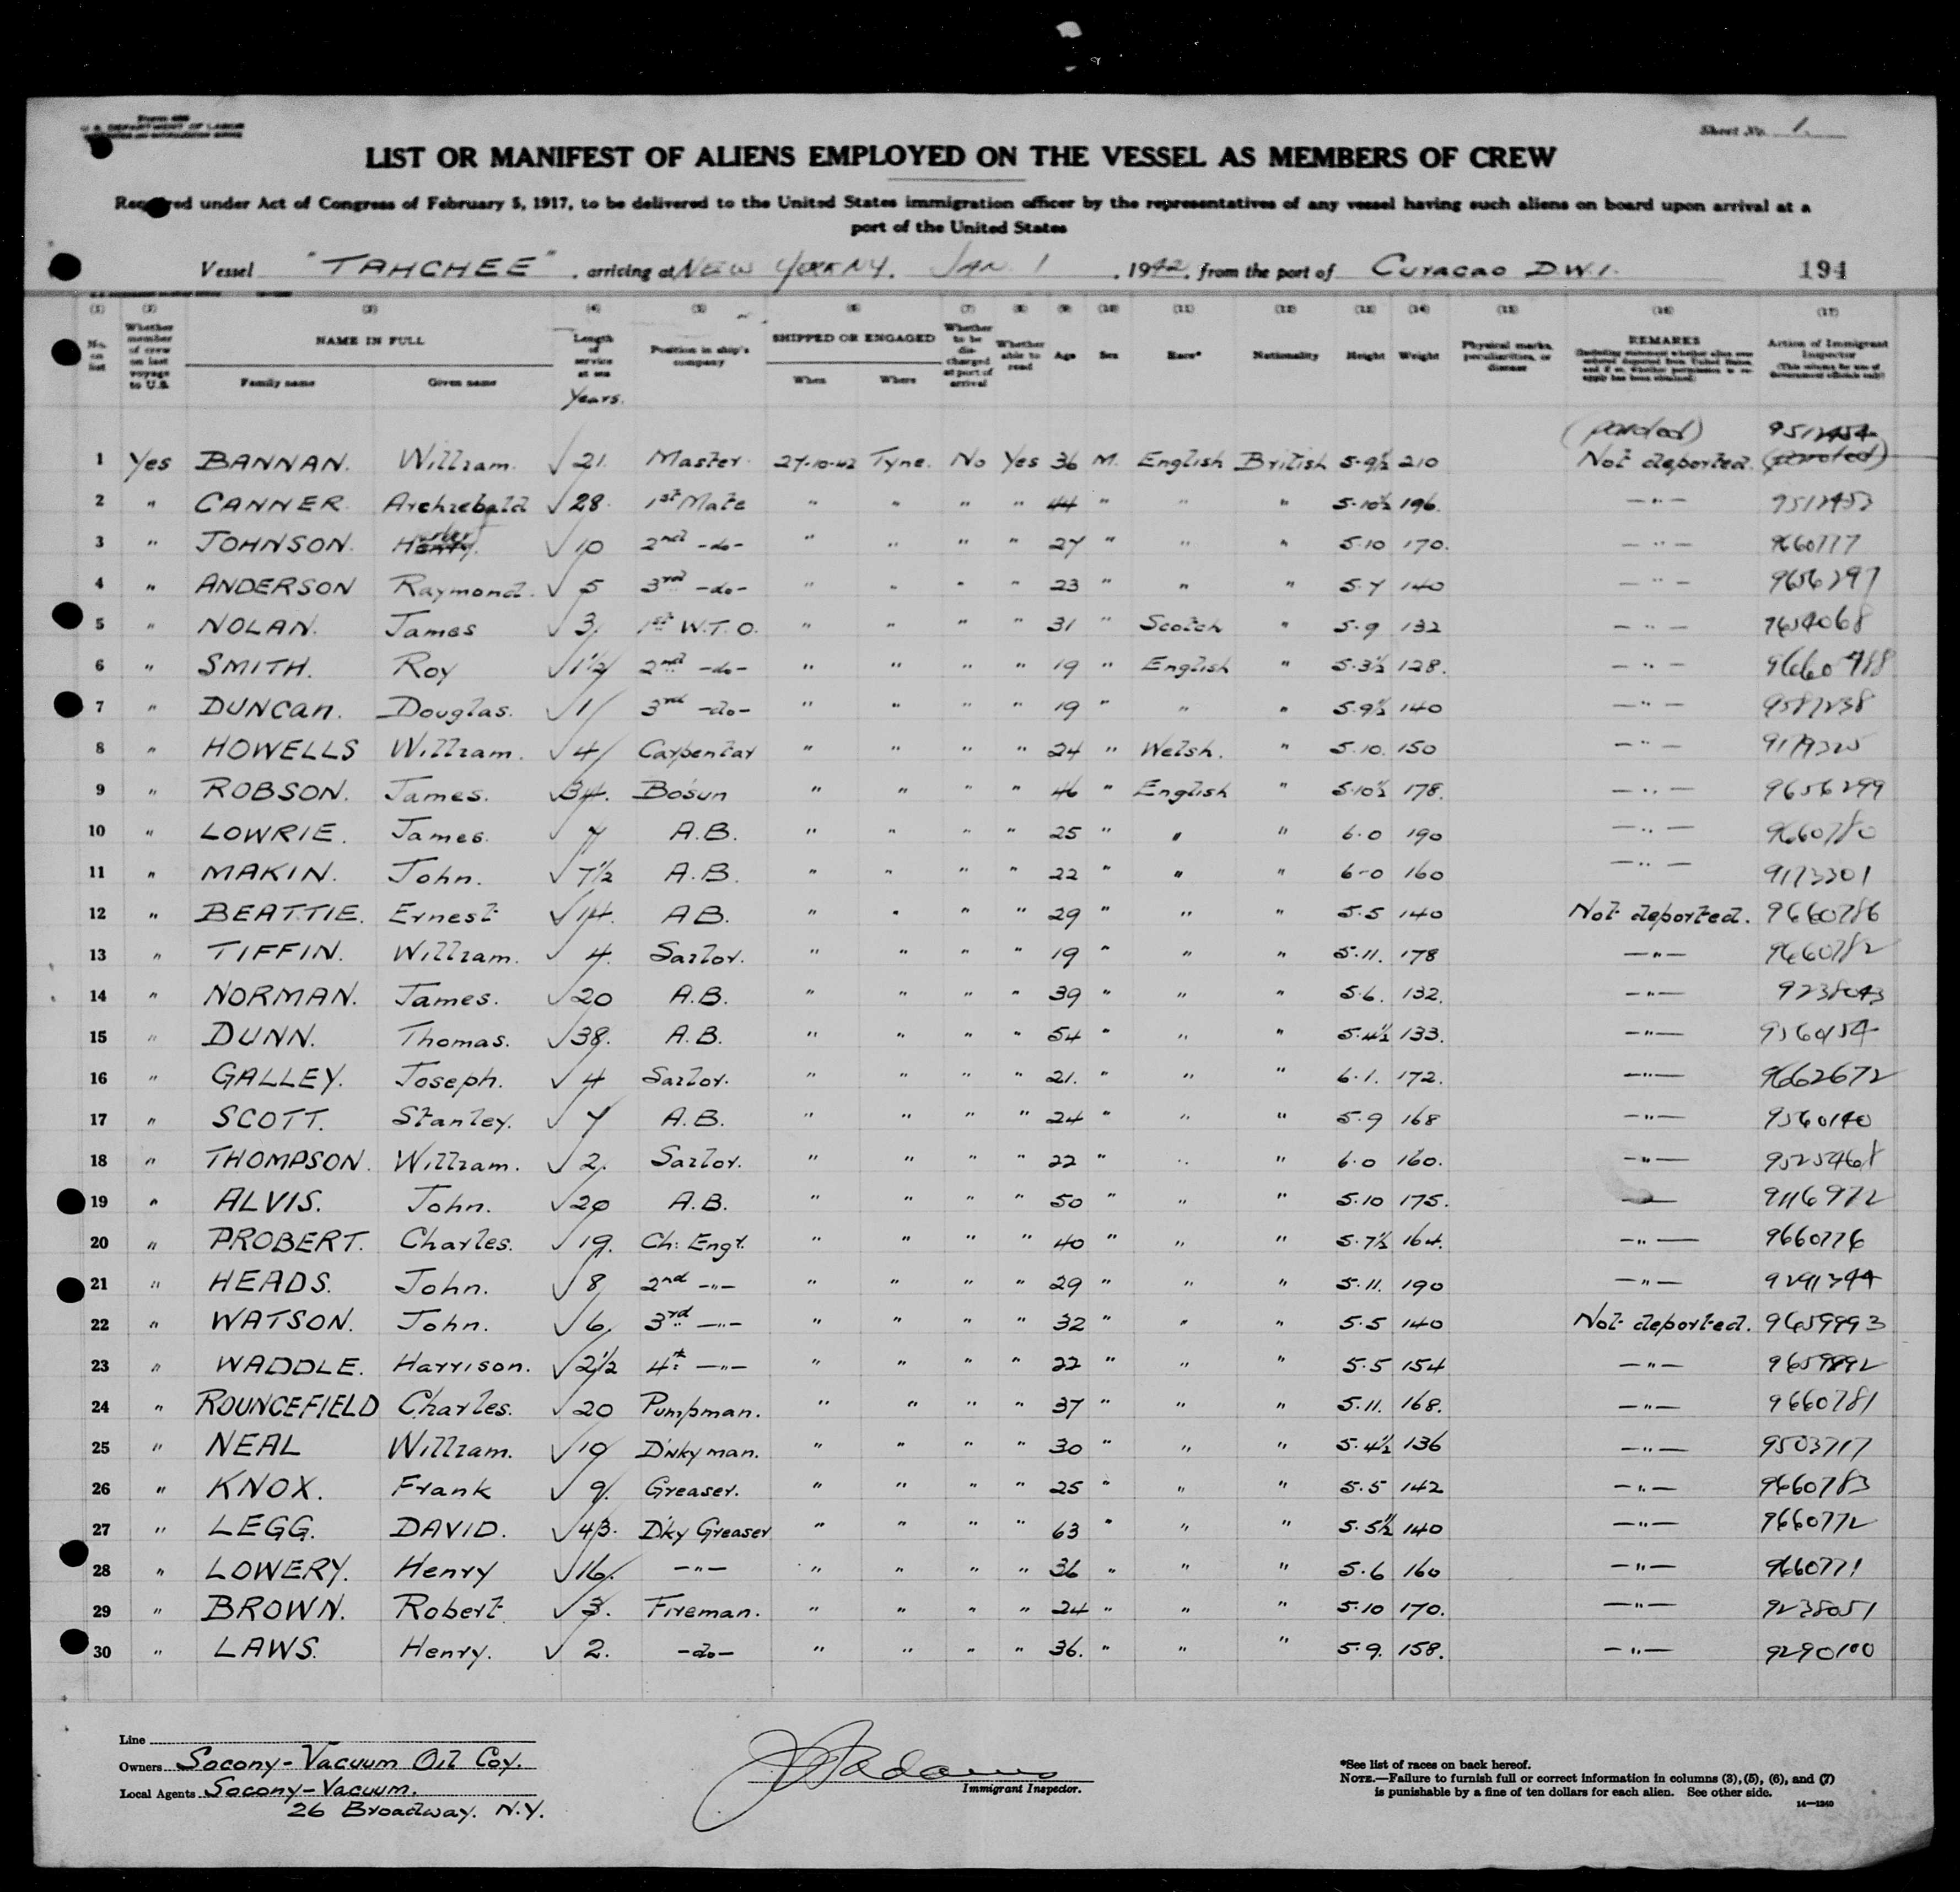 Form 689
U. S. DEPARTMENT OF LABOR
Sheet No. 1.
LIST OR MANIFEST OF ALIENS EMPLOYED ON THE VESSEL AS MEMBERS OF CREW
Required under Act of Congress of February 5, 1917, to be delivered to the United States immigration officer by the representatives of any vessel having such aliens on board upon arrival at a
port of the United States
Vessel "TAHCHEE", arriving at NEW YORK NY. JAN. 1, 1942, from the port of Curacao D.W.I. 194
(1) (2) (3) (4) (5) (6) (7) (8) (9) (10) (11) (12) (13) (14) (15) (16) (17)
No. on list Whether member of crew on last voyage to U.S. NAME IN FULL Family name Given name Length of service at sea Years. Position in ship's company SHIPPED OR ENGAGED When Where Whether to be discharged at port of arrival Whether able to read Age Sex Race* Nationality Height Weight Physical marks, peculiarities, or disease REMARKS (Including statement whether alien ever ordered deported from United States, and if so, whether permission to reapply has been obtained) Action of Immigrant Inspector (This column for use of Government officials only)
(paroled) 9512454
1 Yes BANNAN. William. √ 21. Master. 27-10-42 Tyne. No Yes 36 M. English British 5-9½ 210 Not deported. (paroled)
2 " CANNER. Archiebald √ 28. 1st Mate " " " " 44 " " " 5-10½ 196. —"— 9512453
3 " JOHNSON. Henry. √ 10 2nd -do- " " " " 27 " " " 5-10 170. —"— 9660777
4 " ANDERSON Raymond. √ 5 3rd -do- " " " " 23 " " " 5.7 140 —"— 9656297
5 " NOLAN. James √ 3 1st W.T.O. " " " " 31 " Scotch " 5.9 132 —"— 9654068
6 " SMITH. Roy √ 1½ 2nd -do- " " " " 19 " English " 5.3½ 128. —"— 9660788
7 " DUNCan. Douglas. √ 1 3rd -do- " " " " 19 " " " 5.9½ 140 —"— 9587238
8 " HOWELLS William. √ 4 Carpentar " " " " 24 " Welsh. " 5.10. 150 —"— 9179325
9 " ROBSON. James. √ 34. Bosun " " " " 46 " English " 5.10½ 178. —"— 9656299
10 " LOWRIE. James. √ 7 A.B. " " " " 25 " " " 6.0 190 —"— 9660780
11 " MAKIN. John. √ 7½ A.B. " " " " 22 " " " 6-0 160 —"— 9173301
12 " BEATTIE. Ernest √ 14. AB. " " " " 29 " " " 5.5 140 Not deported. 9660786
13 " TIFFIN. William. √ 4. Sailor. " " " " 19 " " " 5.11. 178 —"— 9660782
14 " NORMAN. James. √ 20 A.B. " " " " 39 " " " 5.6. 132. —"— 9238043
15 " DUNN. Thomas. √ 38. A.B. " " " " 54 " " " 5.4½ 133. —"— 9560154
16 " GALLEY. Joseph. √ 4 Sailor. " " " " 21. " " " 6.1. 172. —"— 9662672
17 " SCOTT. Stanley. √ 7 A.B. " " " " 24 " " " 5.9 168 —"— 9560140
18 " THOMPSON. William. √ 2. Sailor. " " " " 22 " " " 6.0 160. —"— 9525468
19 " ALVIS. John. √ 20 A.B. " " " " 50 " " " 5.10 175. — 9116972
20 " PROBERT. Charles. √ 19. Ch: Engr. " " " " 40 " " " 5.7½ 164. —"— 9660776
21 " HEADS. John. √ 8 2nd —"— " " " " 29 " " " 5.11. 190 —"— 9291344
22 " WATSON. John. √ 6 3rd —"— " " " " 32 " " " 5.5 140 Not deported. 9659993
23 " WADDLE. Harrison. √ 2½ 4th —"— " " " " 22 " " " 5.5 154 —"— 9659992
24 " ROUNCEFIELD Charles. √ 20 Pumpman. " " " " 37 " " " 5.11. 168. —"— 9660781
25 " NEAL William. √ 10 D'nkyman. " " " " 30 " " " 5.4½ 136 —"— 9503717
26 " KNOX. Frank √ 9. Greaser. " " " " 25 " " " 5.5 142 —"— 9660783
27 " LEGG. DAVID. √ 43. D'ky Greaser " " " " 63 " " " 5.5½ 140 —"— 9660772
28 " LOWERY. Henry √ 16. —"— " " " " 36 " " " 5.6 160 —"— 9660771
29 " BROWN. Robert √ 3. Fireman. " " " " 24 " " " 5.10 170. —"— 9238051
30 " LAWS. Henry. √ 2. -do- " " " " 36. " " " 5.9. 158. —"— 9290100
Line
Owners Socony-Vacuum Oil Coy.
Local Agents Socony-Vacuum.
26 Broadway. N.Y.
Immigrant Inspector.
*See list of races on back hereof.
NOTE.—Failure to furnish full or correct information in columns (3), (5), (6), and (7)
is punishable by a fine of ten dollars for each alien. See other side.
14—1240